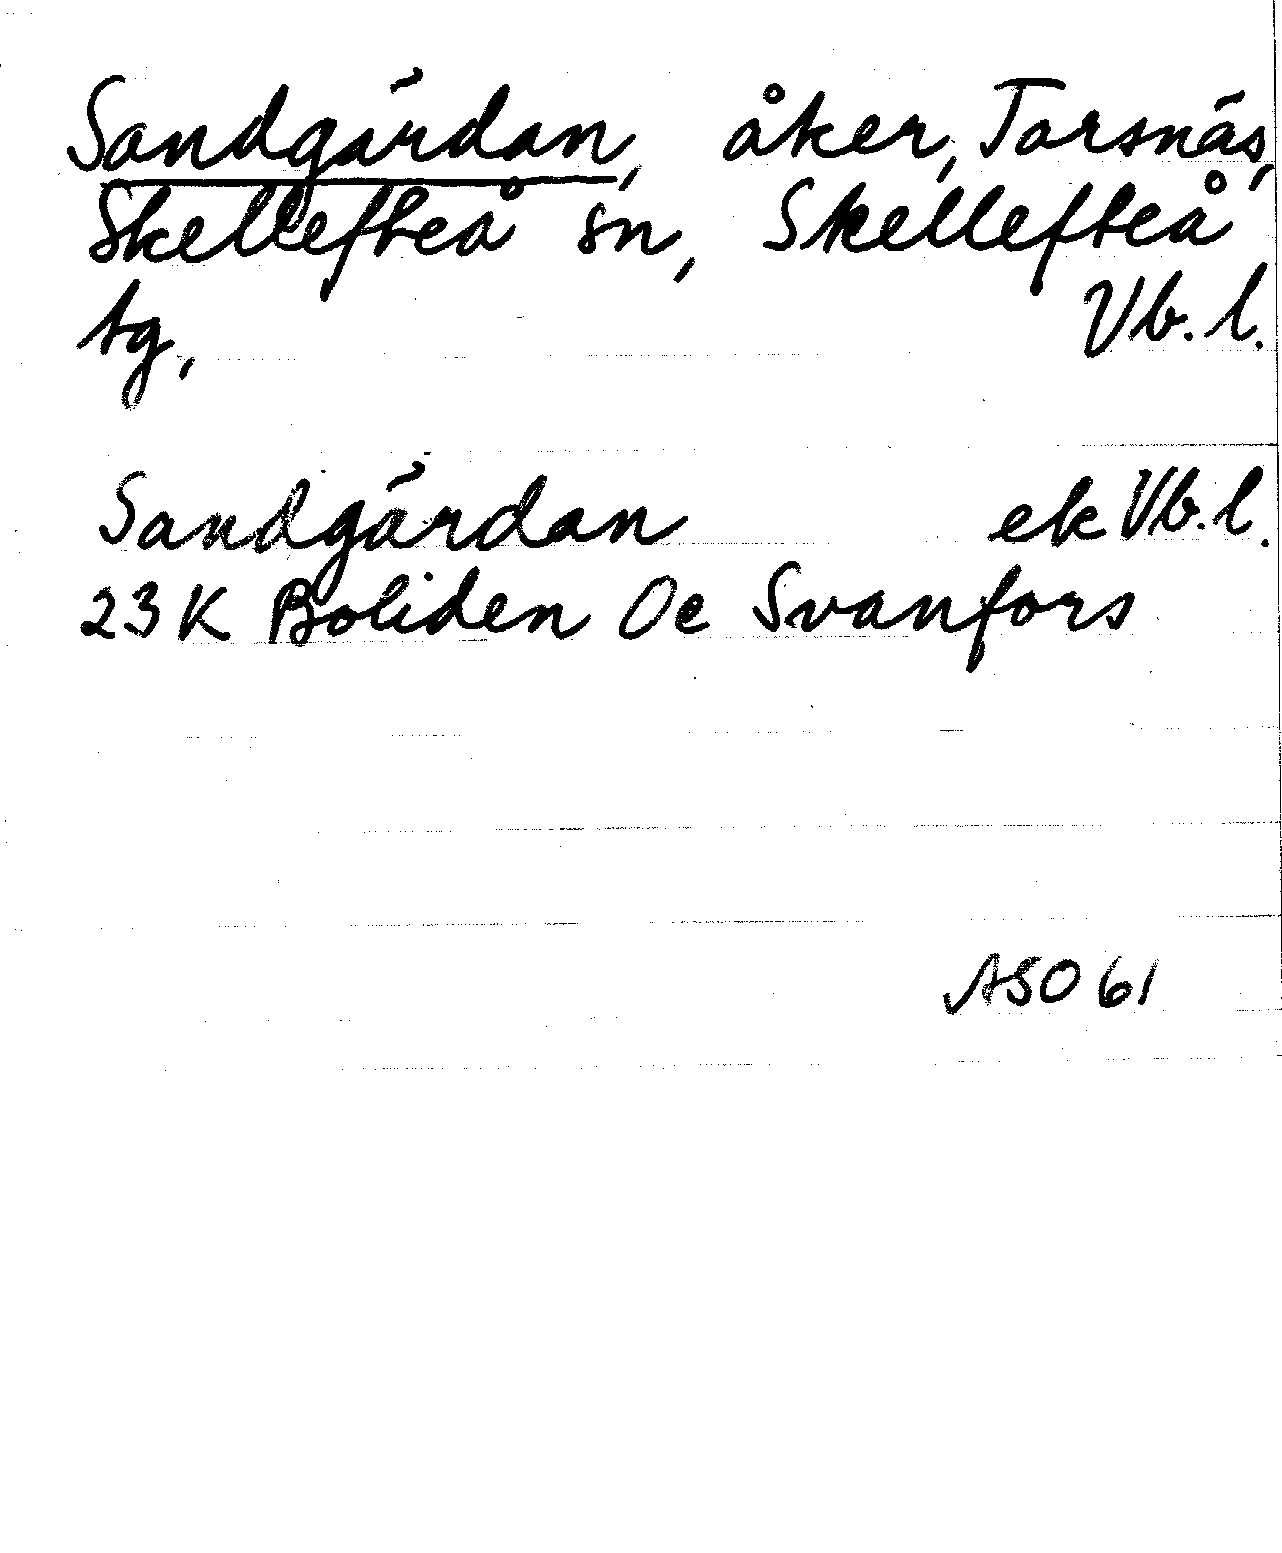 Sandgärdan, åker, Torsnäs,
Skellefteå sn, Skellefteå
tg, Vb.l.
Sandgärdan ek Vb.l.
23K Boliden Oe Svanfors
ASO 61